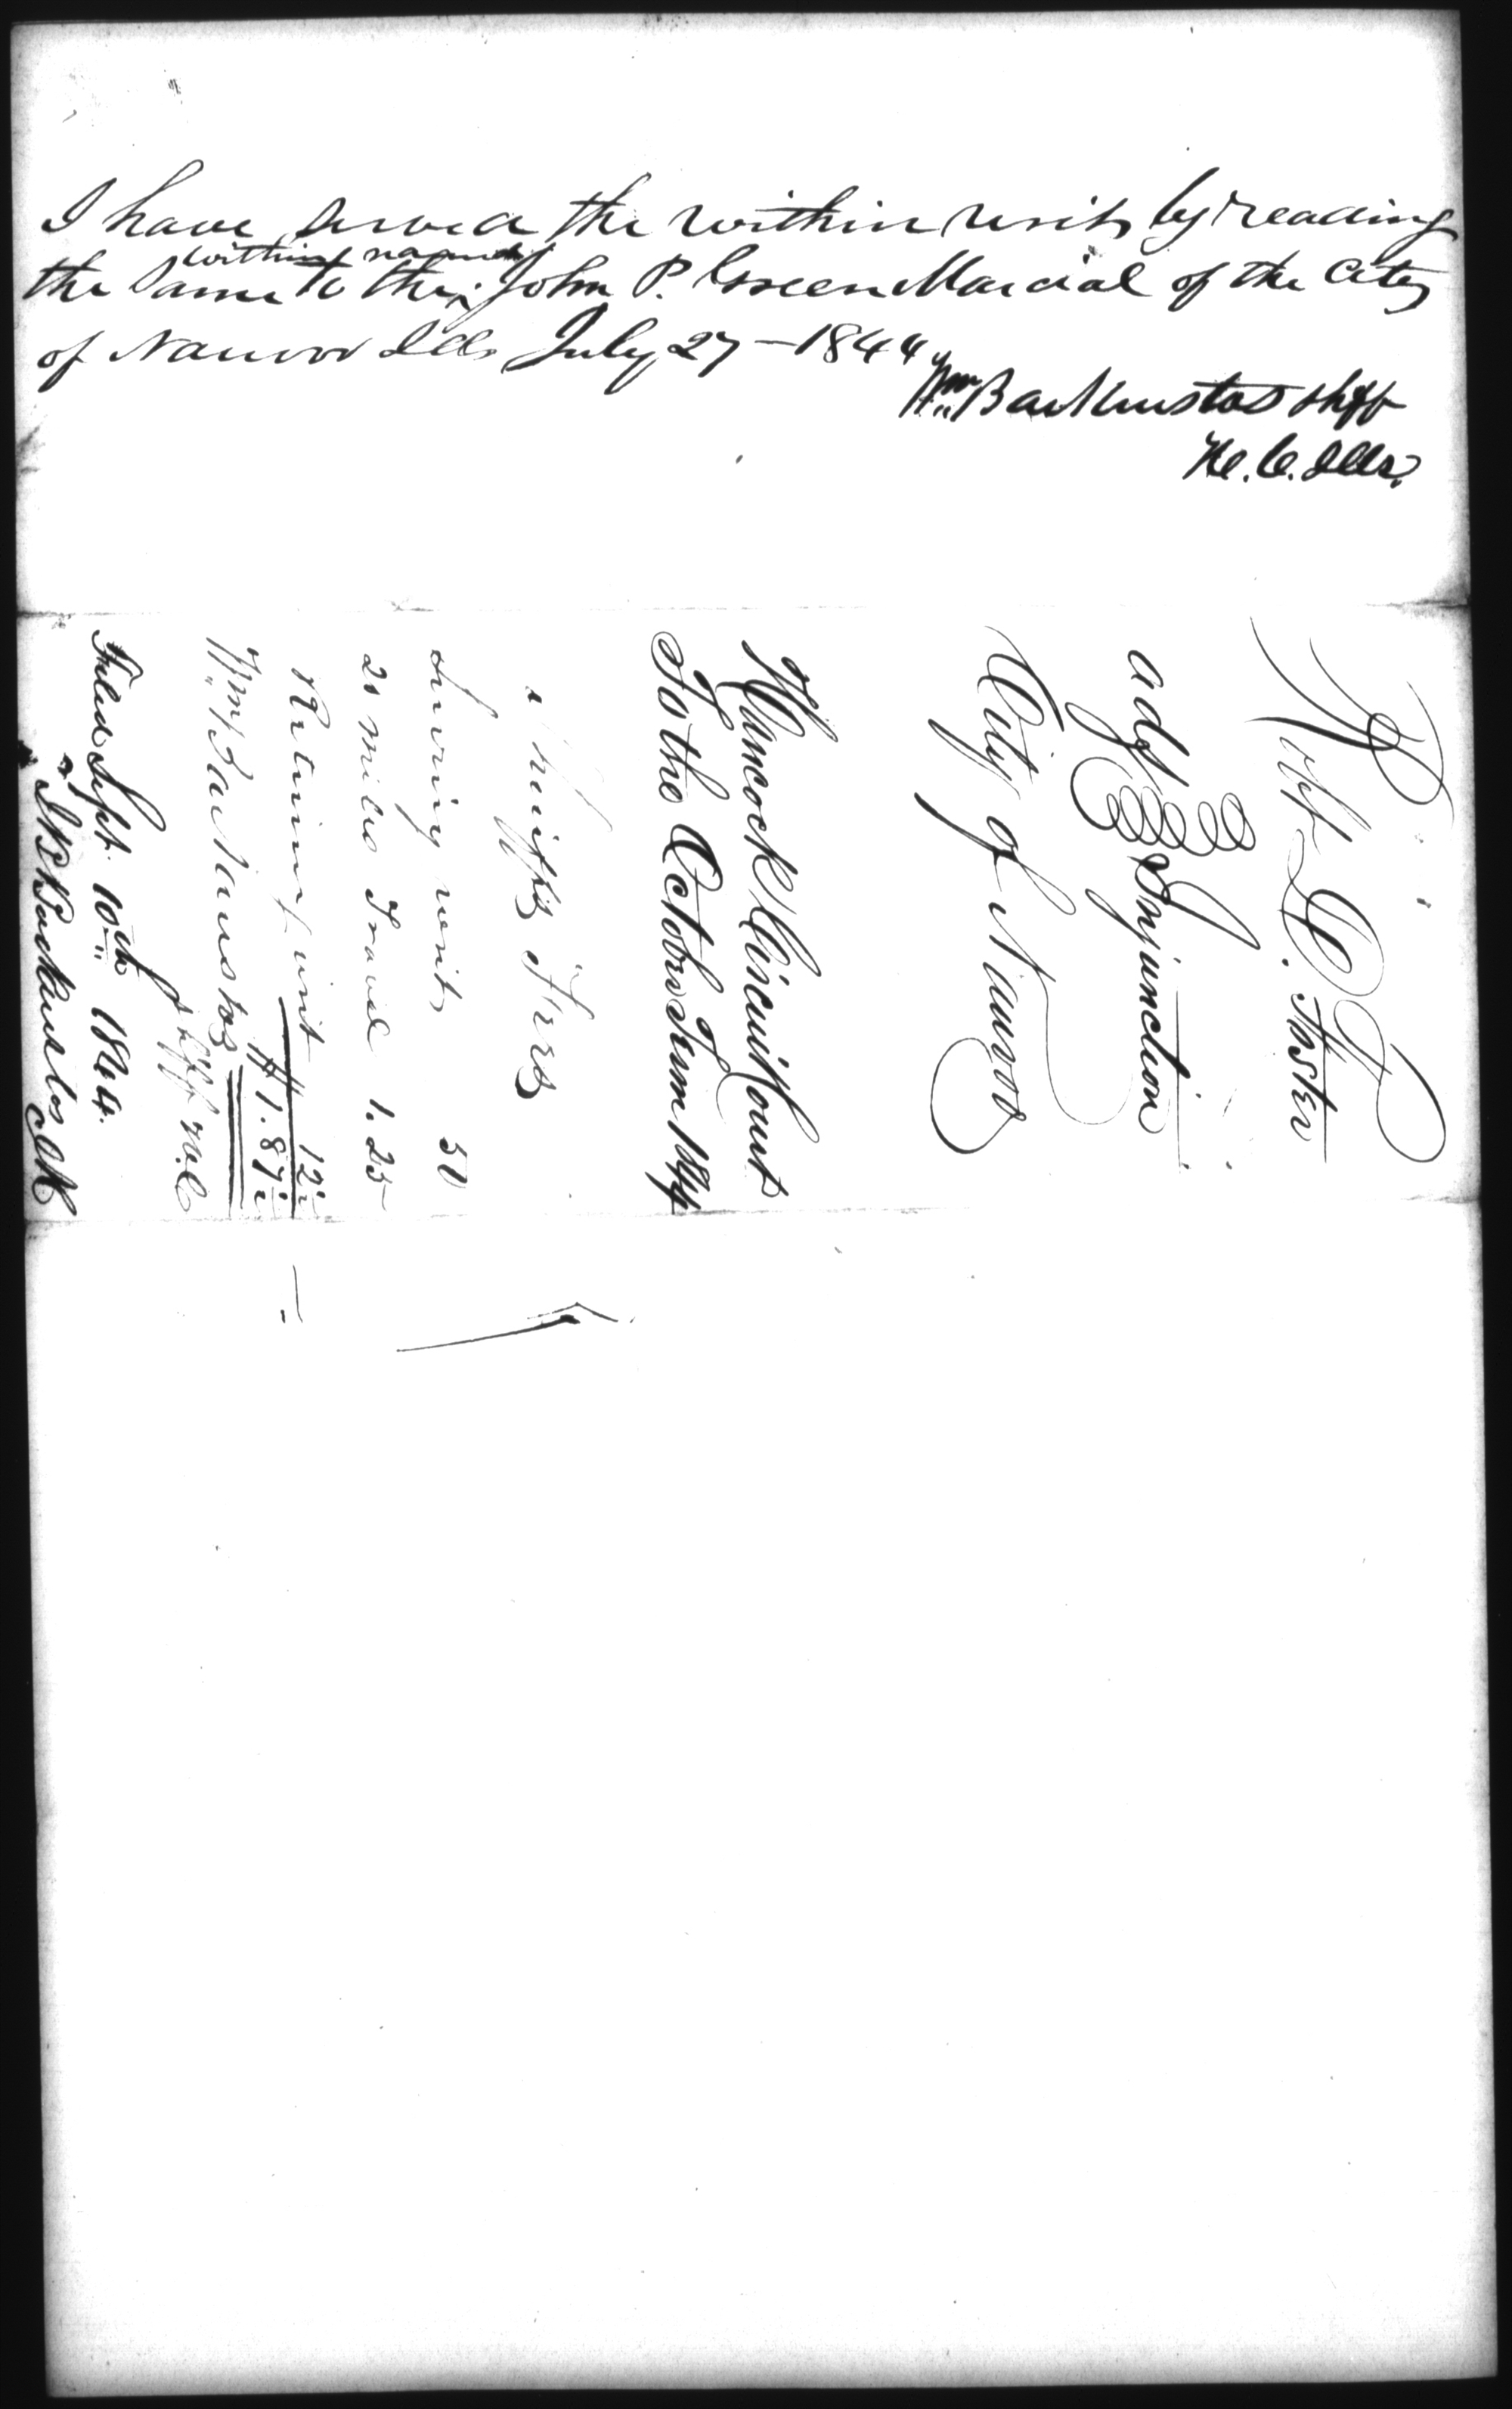 I have served the within writ by reading
the same to the within named John P. Green Marcial of the City
of Nauvoo Ills July 27 - 1844
Wm Backenstos shff
H. C. Ills.
Robt D. Foster
ads Injunction
City of Nauvoo
Hancock Circuit Court
To the October Term 1844
Sheriffs Fees
Serving writ 50
25 miles Travel 1.25
Returning writ 12½
$1.87½
Wm Backenstos
shff H.C
Filed Sept. 10th 1844.
J B Backenstos Clk